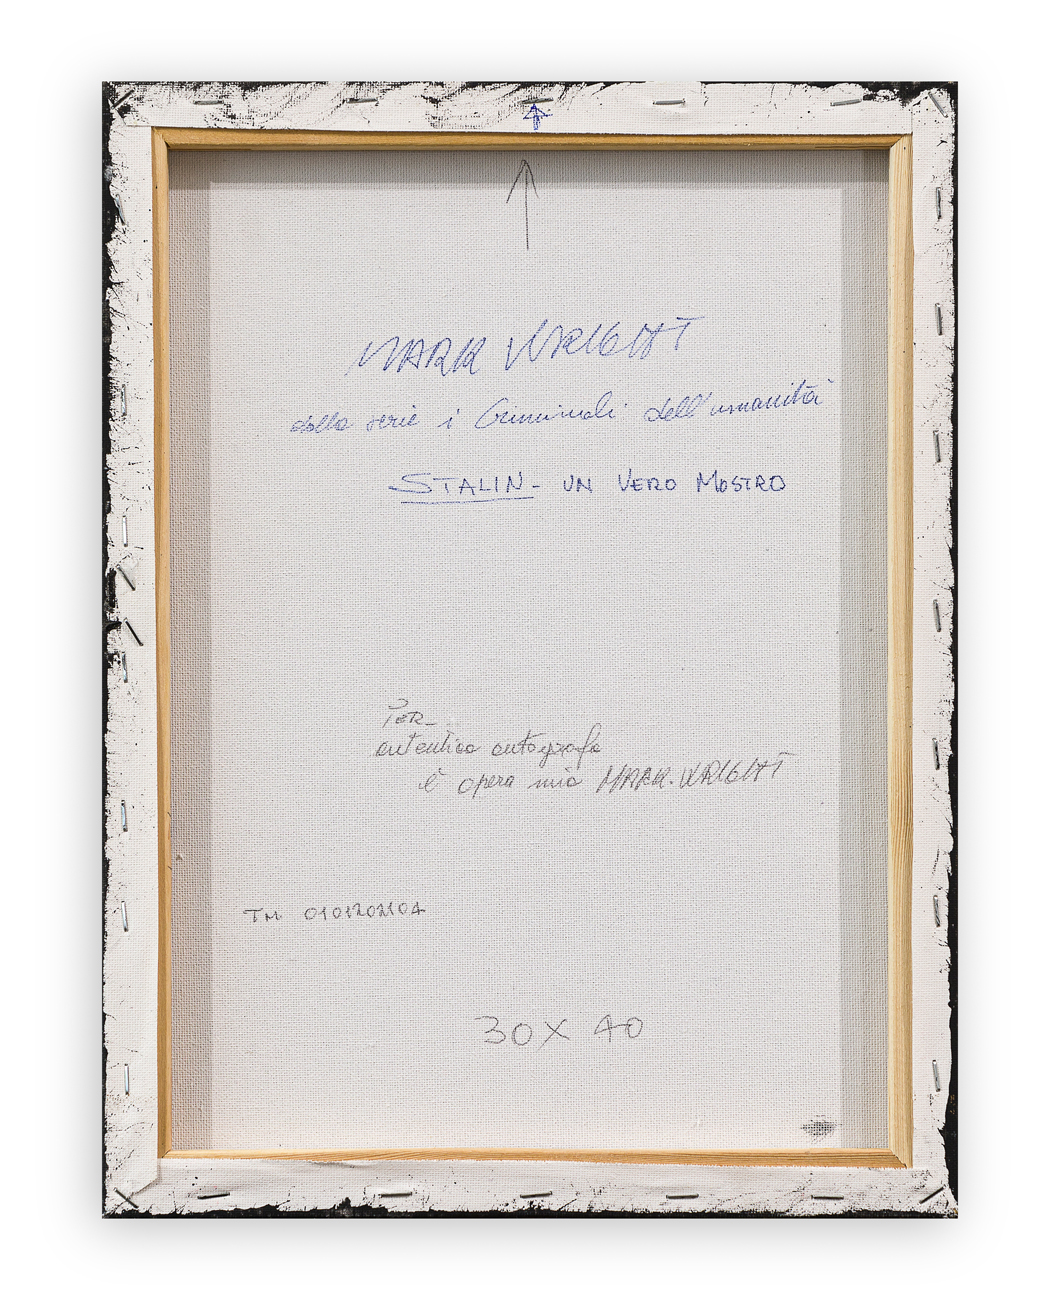 MARK WRIGHT
della serie i Criminali dell'umanità
STALIN - UN VERO MOSTRO
PER
autentica autografa
è opera mia MARK. WRIGHT
TM 0101202104
30 X 40